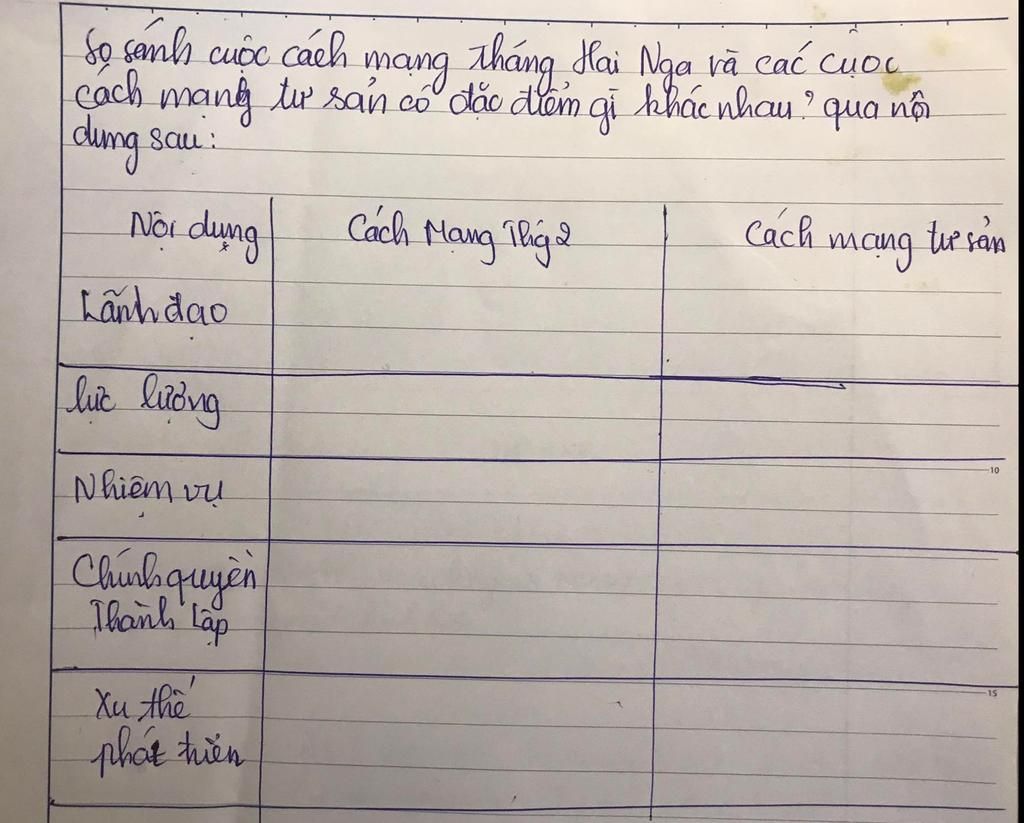 So sánh cuộc cách mạng tháng Hai Nga và các cuộc
cách mạng tư sản có đặc điểm gì khác nhau? qua nội
dung sau:
Nội dung Cách Mạng Thg 2 Cách mạng tư sản
Lãnh đạo
lực lượng
10
Nhiệm vụ
Chính quyền
Thành Lập
15
Xu thế
phát triển